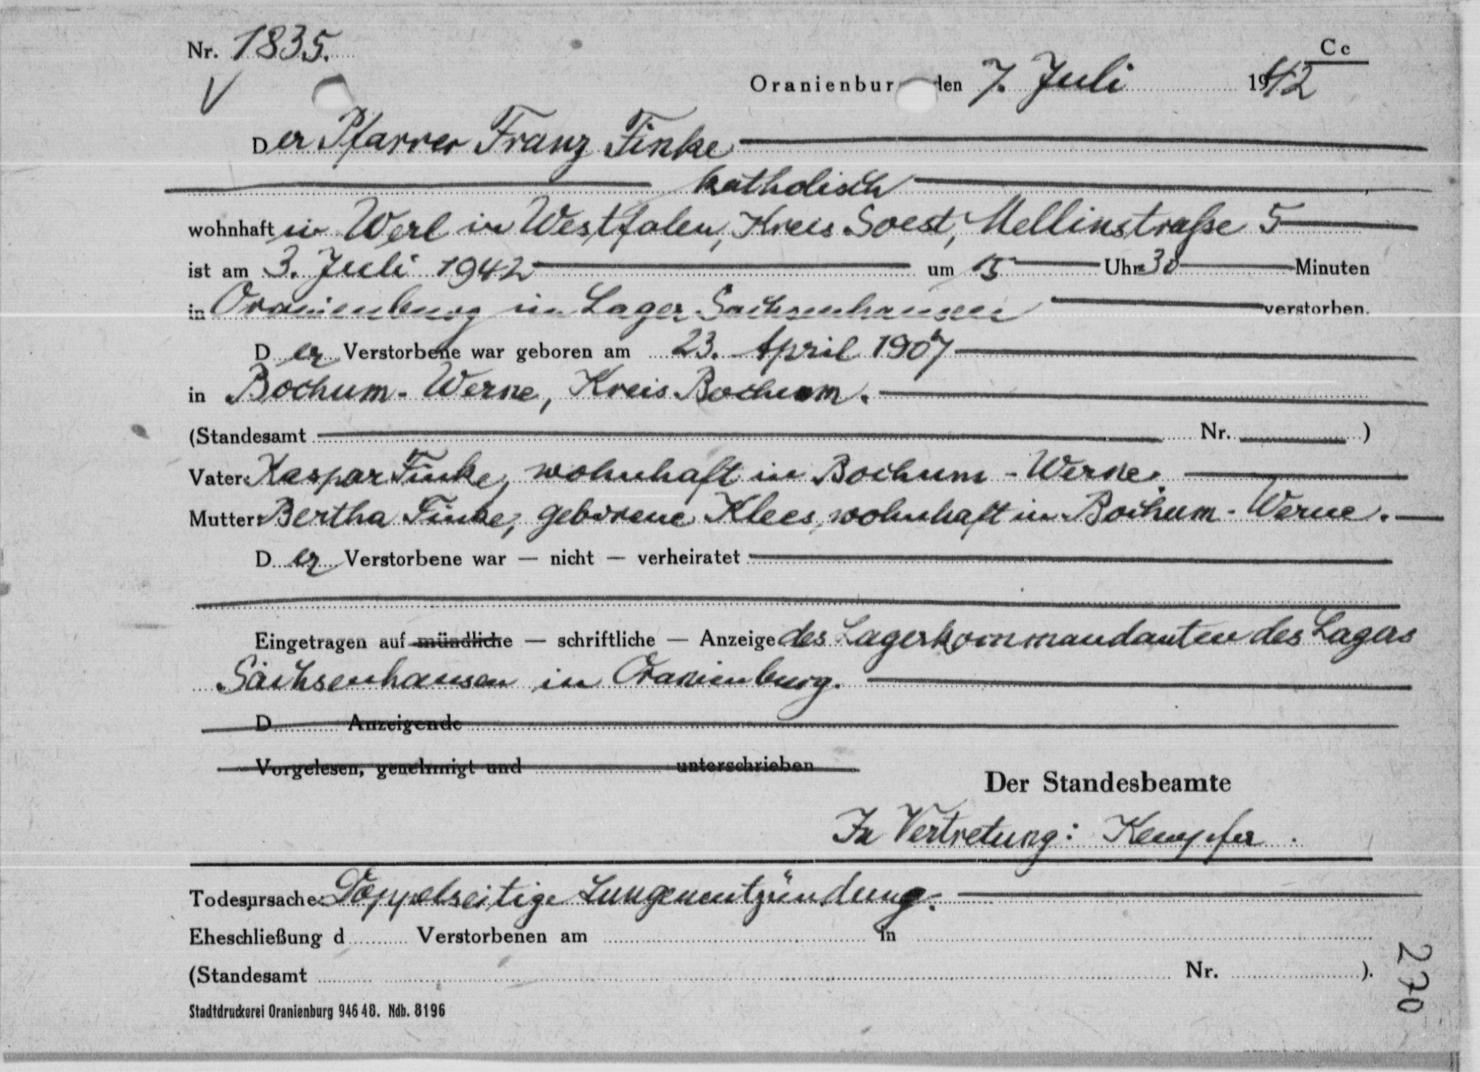 Cc
Nr. 1835.
V
Oranienbur den 7. Juli 1942
Der Pfarrer Franz Finke
katholisch
wohnhaft in Werl in Westfalen, Kreis Soest, Mellinstraße 5
ist am 3. Juli 1942 um 15 Uhr 30 Minuten
in Oranienburg im Lager Sachsenhausen verstorben.
Der Verstorbene war geboren am 23. April 1907
in Bochum-Werne, Kreis Bochum.
(Standesamt Nr. )
Vater: Kaspar Finke, wohnhaft in Bochum-Werne.
Mutter: Bertha Finke, geborene Klees, wohnhaft in Bochum-Werne.
Der Verstorbene war — nicht — verheiratet
Eingetragen auf mündliche — schriftliche — Anzeige des Lagerkommandanten des Lagers
Sachsenhausen in Oranienburg.
D Anzeigende
Vorgelesen, genehmigt und unterschrieben
Der Standesbeamte
In Vertretung: Kempfer
Todesursache: Doppelseitige Lungenentzündung.
Eheschließung d Verstorbenen am in
(Standesamt Nr. ).
Stadtdruckerei Oranienburg 946 48. Ndb. 8196
270